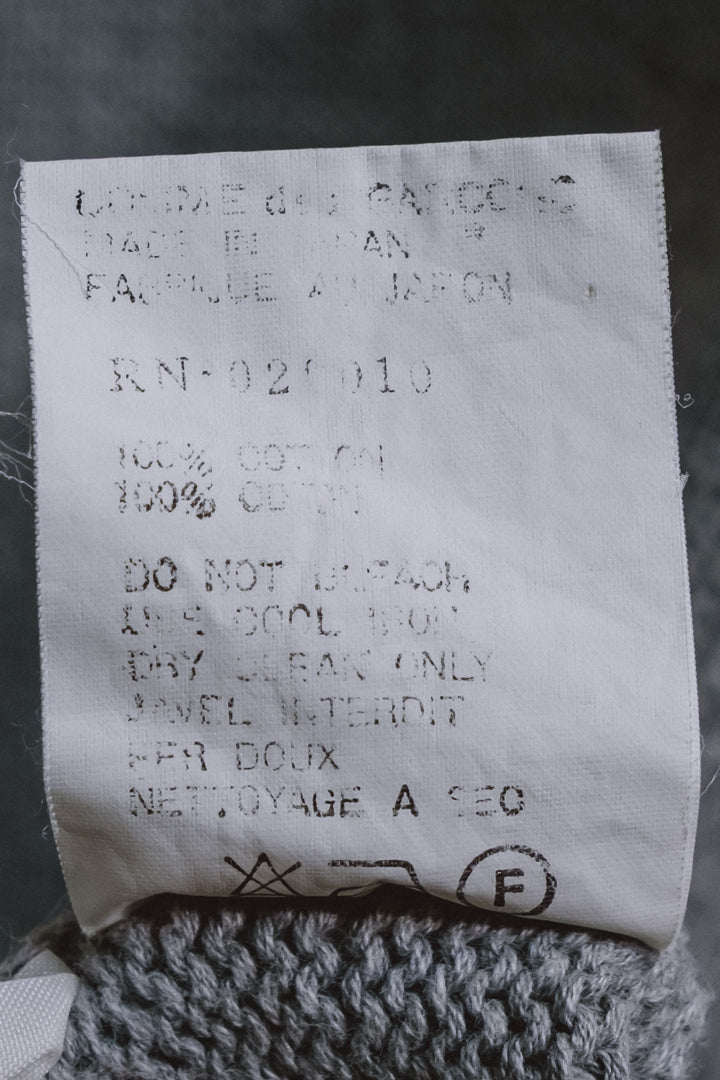 COMME des GARCONS
MADE IN JAPAN
FABRIQUE AU JAPON
100% COTTON
100% COTON
DO NOT BLEACH
USE COOL IRON
DRY CLEAN ONLY
JAVEL INTERDIT
FER DOUX
NETTOYAGE A SEC
F